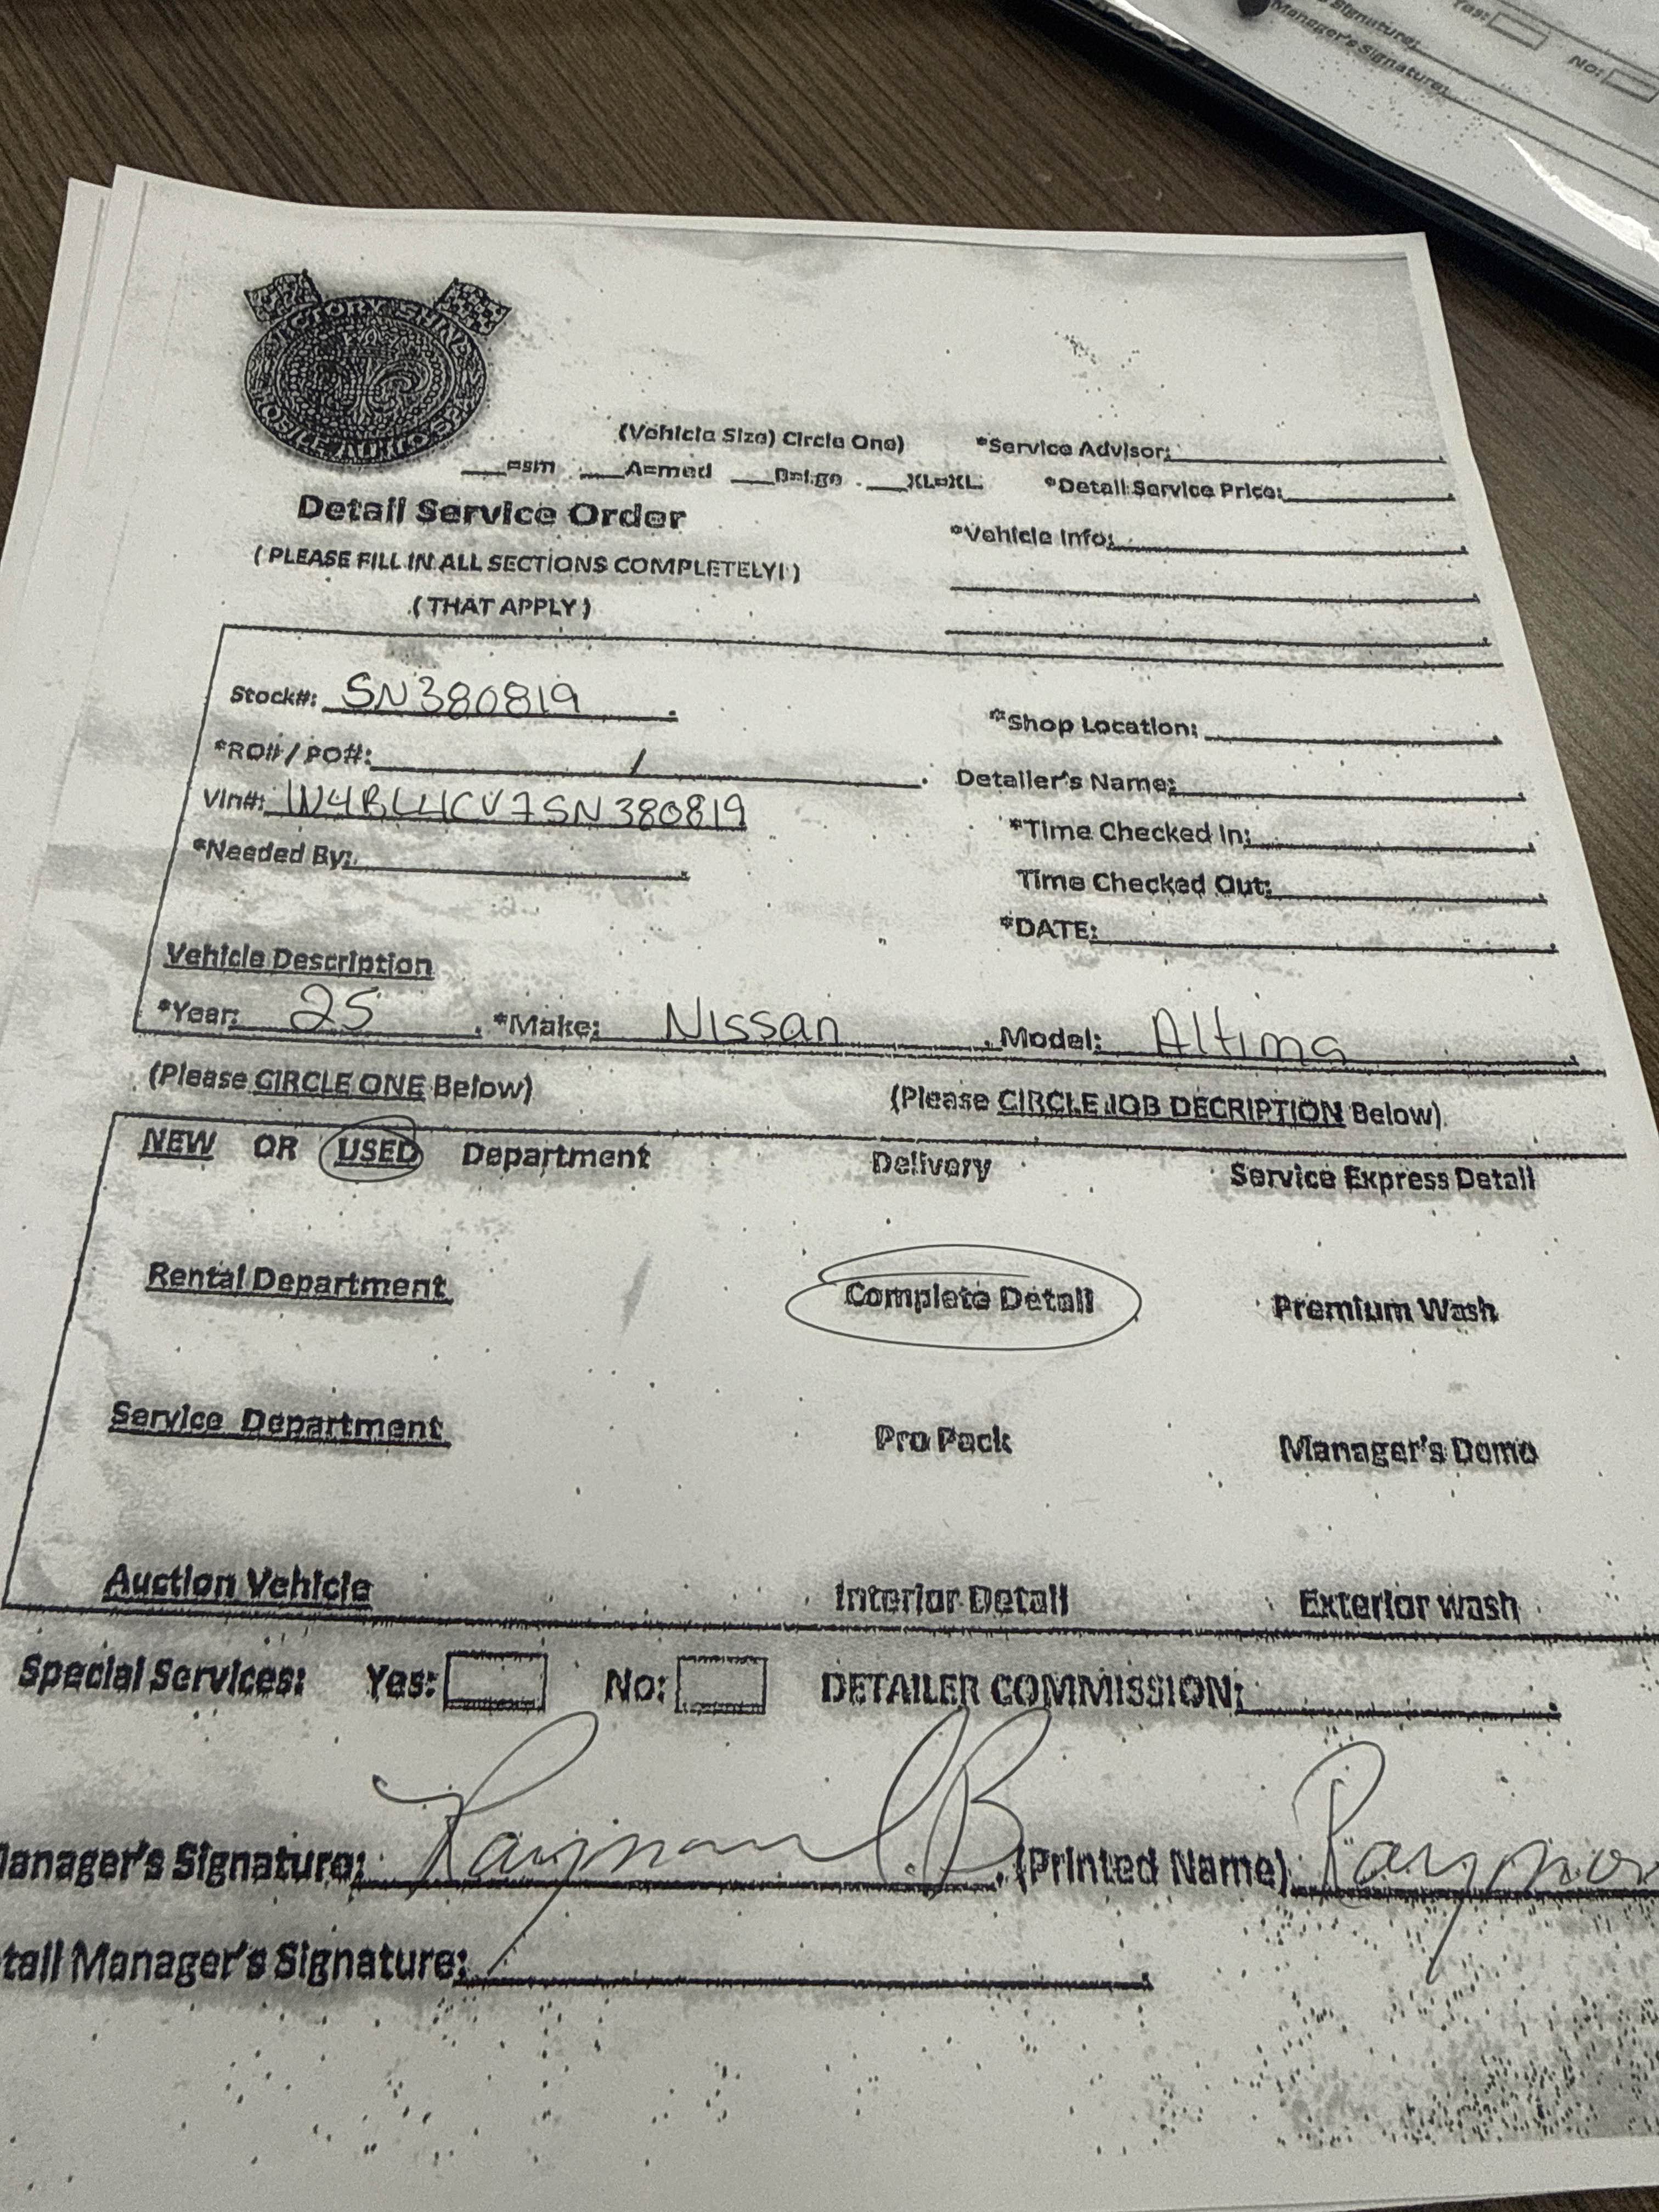 Signature:
Manager's Signature:
Yes:
No:
VICTORY SHINE
MOBILE AUTO SPA
(Vehicle Size) Circle One)
*Service Advisor:
=sm A=med B=Lge XL=XL
*Detail Service Price:
Detail Service Order
*Vehicle Info:
( PLEASE FILL IN ALL SECTIONS COMPLETELY! )
( THAT APPLY )
Stock#: SN380819
*Shop Location:
*RO# / PO#: /
Detailer's Name:
Vin#: 1N4BL4CV7SN380819
*Time Checked In:
*Needed By:
Time Checked Out:
*DATE:
Vehicle Description
*Year: 25 *Make: Nissan Model: Altima
(Please CIRCLE ONE Below) (Please CIRCLE JOB DECRIPTION Below)
NEW OR USED Department Delivery Service Express Detail
Rental Department Complete Detail Premium Wash
Service Department Pro Pack Manager's Demo
Auction Vehicle Interior Detail Exterior wash
Special Services: Yes: No: DETAILER COMMISSION:
Manager's Signature: Raymond B (Printed Name) Raymon
tail Manager's Signature: